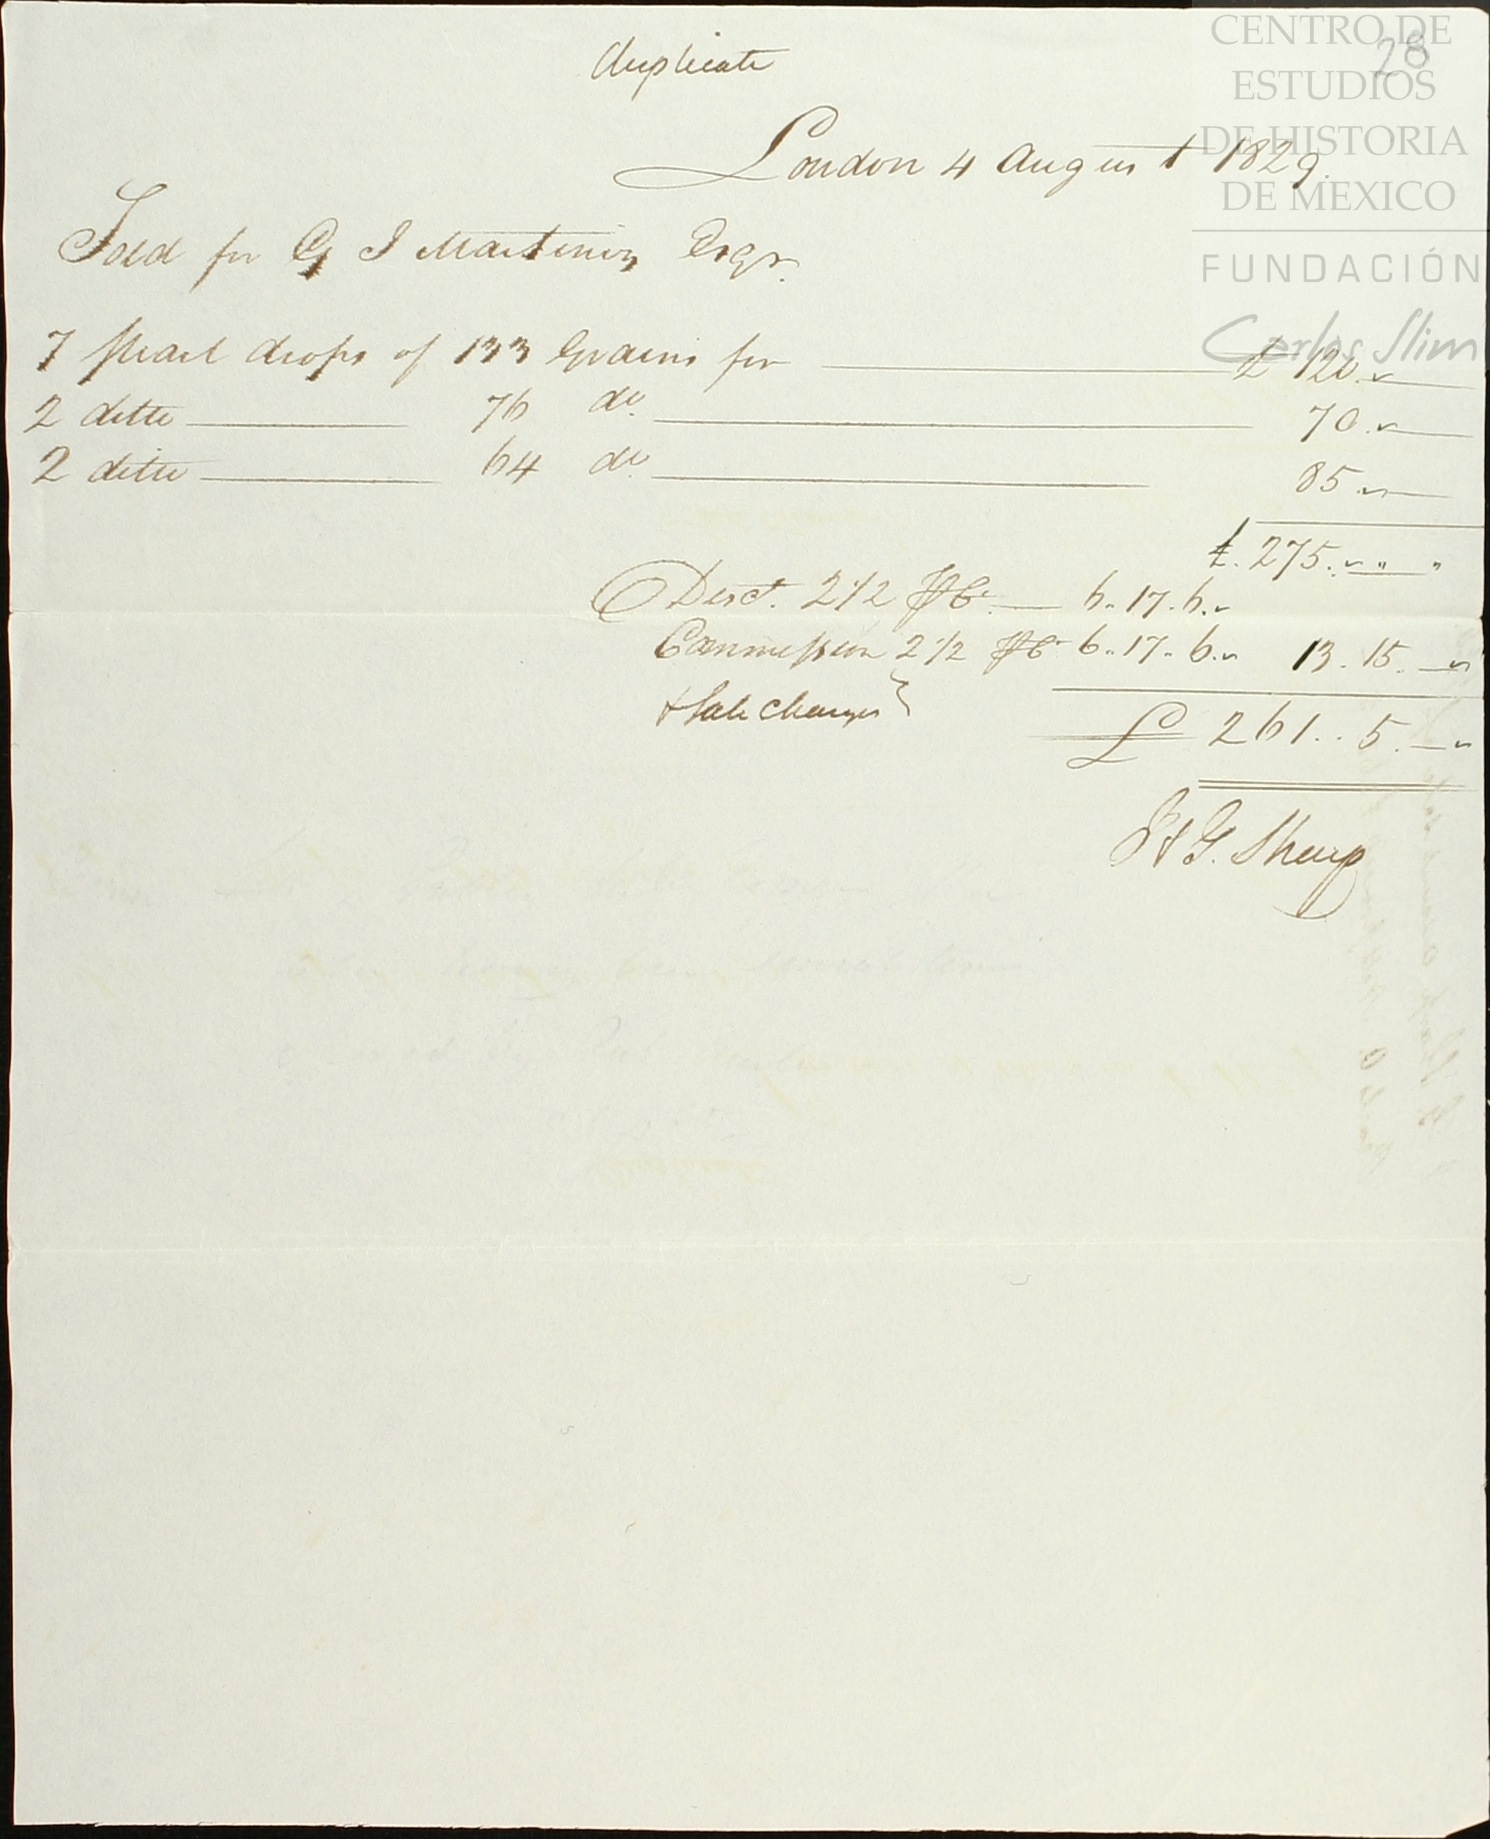 CENTRO DE
ESTUDIOS
DE HISTORIA
DE MEXICO
FUNDACIÓN
Carlos Slim
28
Duplicate
London 4 August 1829.
Sold for G J Martinez Esqr.
7 Pearl drops of 133 Grains for £ 120. "
2 ditto 76 do. 70. "
2 ditto 64 do. 85. "
£. 275. " "
Disct. 2 1/2 P C. 6. 17. 6. "
Commission 2 1/2 P C. 6. 17. 6. " 13. 15. "
& Sale charges }
£ 261. . 5. "
J & G. Sharp